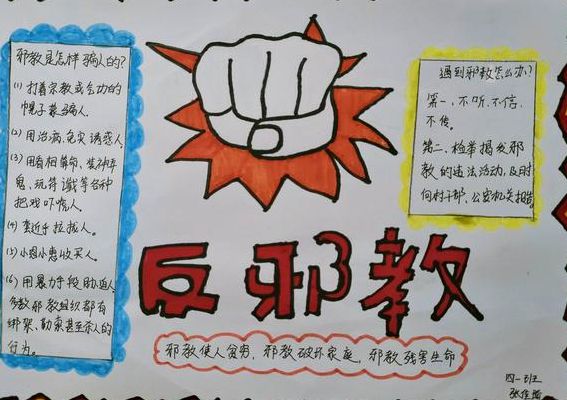 邪教是怎样骗人的?
(1) 打着宗教或气功的
幌子蒙骗人.
(2) 用治病、免灾诱惑人.
(3) 用看相算命、装神弄
鬼、玩符谶等各种
把戏吓唬人.
(4) 套近乎拉拢人.
(5) 小恩小惠收买人.
(6) 用暴力手段胁迫人
多数邪教组织都有
绑架、勒索甚至杀人的
行为。
遇到邪教怎么办?
第一,不听、不信、
不传。
第二、检举揭发邪
教的违法活动,及时
向村干部、公安机关报告
反邪教
邪教使人贫穷,邪教破坏家庭,邪教残害生命
四一班
张佳